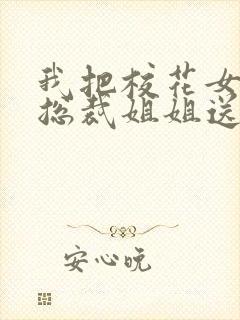 我把校花女
总裁姐姐送
安心晥